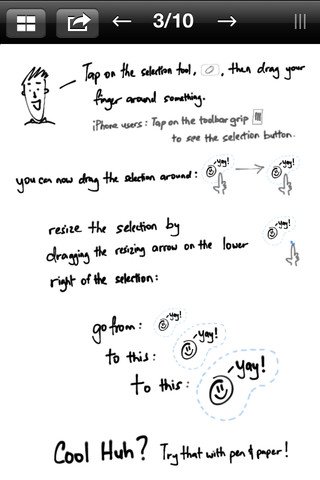 3/10
Tap on the selection tool, , then drag your
finger around something.
iPhone users: Tap on the toolbar grip
to see the selection button.
you can now drag the selection around: yay! yay!
resize the selection by yay!
dragging the resizing arrow on the lower
right of the selection:
go from: yay!
to this: yay!
to this: yay!
Cool Huh? Try that with pen & paper!